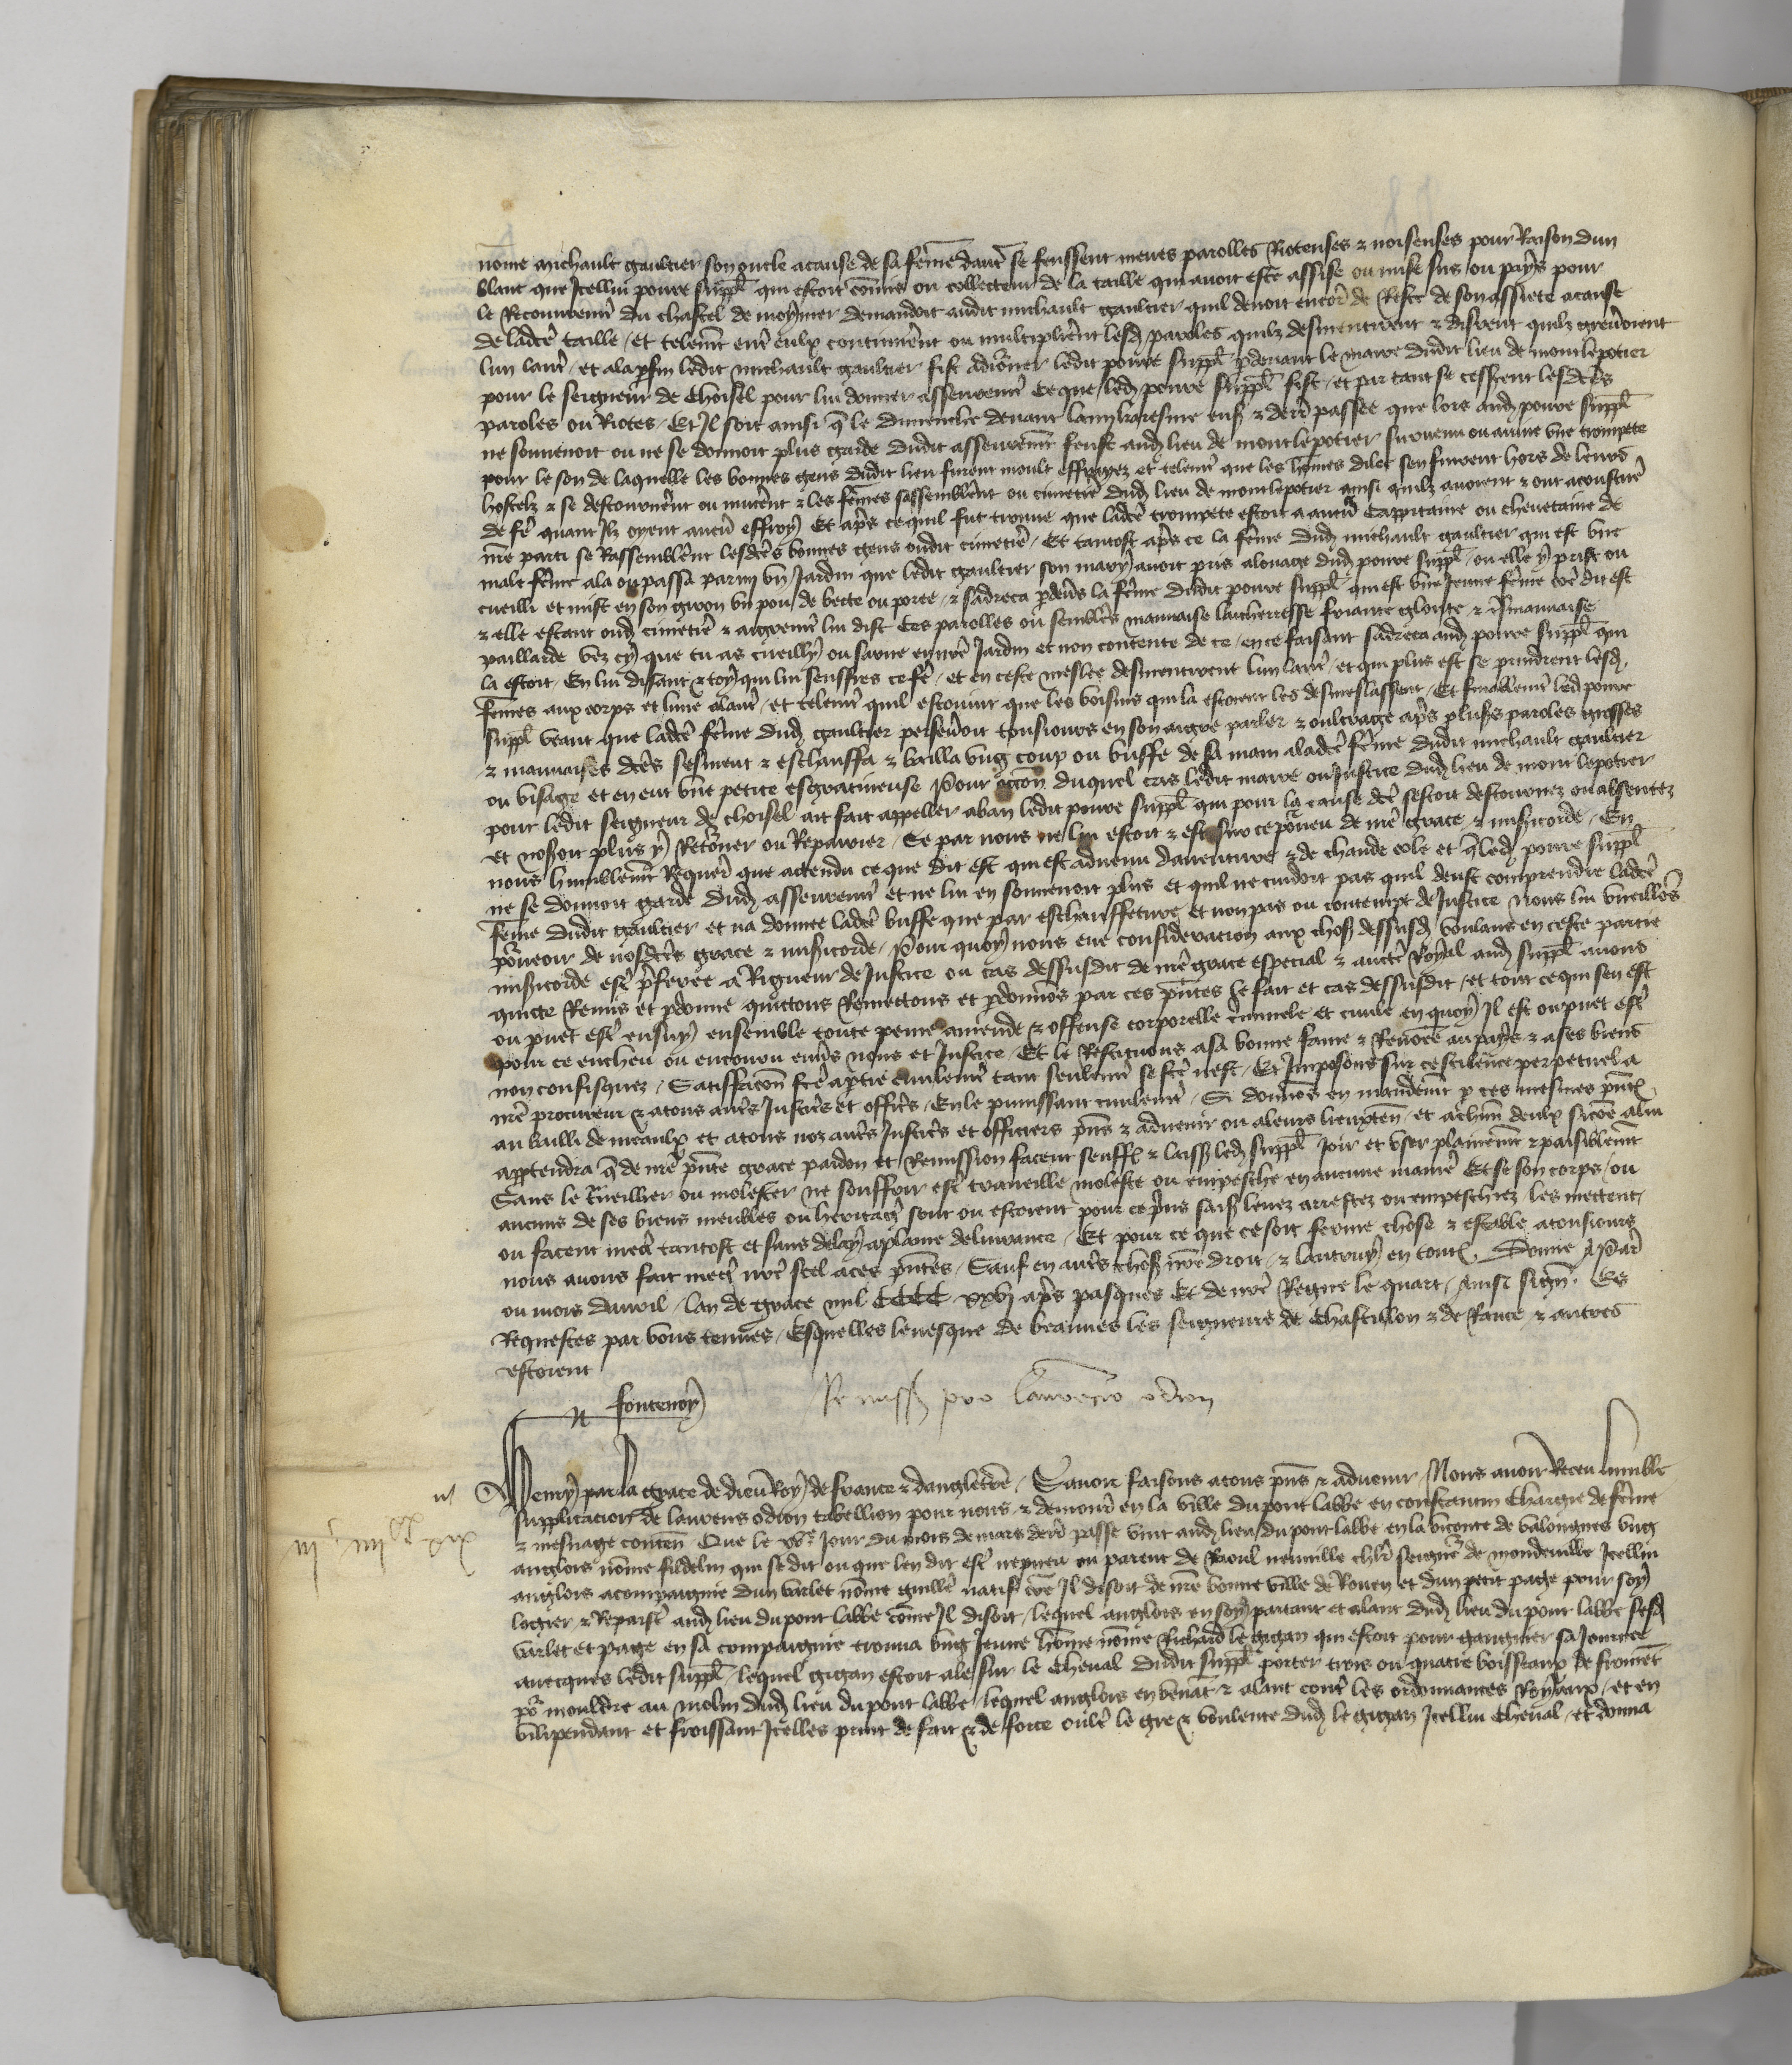 nōme michault gaultier son oncle a cause de sa fēme dautr̄ se feussent meues parolles Roteuses & noiseuses pour Raison dun
blanc que Icellui poure suppl̄ qui estoit cōmis ou collecteur de la taille qui auoit este assise ou mise sus ou pays pour
le Recouuremēt du chastel de moymer demandoit audit michault gaultier quil deuoit encor̄ de Reste de son assiete a cause
de ladcē taille / et telemēt entr̄ eulx continuer̄nt ou multiplier̄nt lesd paroles quilz desmentirent & disrent quilz greueroient
lun lautr̄ / et a la pfin ledit michault gaultier fist adiōrner ledit poure suppl̄ pdeuant le maire dudit lieu de montlepotier
pour le seigneur de Choisel pour lui donner asseuremēt Ce que led poure suppl̄ fist / et par tant se cesserent lesdcēs
paroles ou Riotes / Et Il soit ainsi q̄ le dimenche deuant lamykaresme ens & derr̄ passee que lors aud poure suppl̄
ne souuenoit ou ne se donnoit plus garde dudit asseuremēt feust aud lieu de montlepotier suruenu ou venue vne trompete
pour le son de laquelle les bonnes gens dudit lieu furent moult effrayez et telemēt que les hōmes dilec sen fuirent hors de leurs
hostelz & se destournerēnt ou mucer̄nt & les fēmes sassembler̄nt ou cimetier̄ dud lieu de montlepotier ainsi quilz auoient & ont acoustumē
de fē quant Ilz oyent aucū effroy Et apr̄s ce quil fut trouue que ladcē trompete estoit a aucū Cappitaine ou cheuetaine de
nrē parti se Rassembler̄nt lesdcēs bonnes gens oudit cimetier̄ / Et tantost apr̄s ce la fēme dud michault gaultier qui est vne
male fēme ala ou passa parmy vn Jardin que ledit gaultier son mary auoit pris a louage dud poure suppl̄ / ou elle y prist ou
cueilli et mist en son giron vn pou de bette ou poree / & sadreca pdeurs la fēme dudit poure suppl̄ qui est vne Jeune fēme cōe dit est
& elle estant oud cimetier̄ & aigremēt lui dist Ces parolles ou semblēs mauuaise lucherresse friante gloute & mauuaise
paillarde vez cy que tu as cueilly ou sarue en nrē Jardin et non contente de ce / en ce faisant sadreca aud poure suppl̄ qui
la estoit / En lui disant & toy qui lui seuffres ce fē / et en ceste meslee desmentirent lun lautr̄ / et qui plus est se prindrent lesd
fēmes aux corps et lune a lautr̄ / et telemēt quil escouint que les voisins qui la estoient les desmeslassent / Et finablemēt led poure
suppl̄ veant que ladcē fēme dud gaultier perseueroit tousiours en son aigre parler & oultrage apr̄s plus̄rs paroles grosses
& mauuaises dcēs sesmeut & eschauffa & bailla vng coup ou buffe de sa main a ladcē fēme dudit michault gaultier
ou visage et en eut vne petite esgratineuse Pour occōn duquel cas ledit maire ou Justice dud lieu de montlepotier
pour ledit seigneur de choisel ait fait appeller a ban ledit poure suppl̄ qui pour la cause dcē sestoit destournez ou absentez
et nosoit plus y Retōrner ou Repairier / Se par nous ne lui estoit & est sur ce pōrueu de nrē grace & misericorde / En
nous humblemēt Requer̄ que attendu ce que dit est qui est aduenu dauenture & de chaude cole et q̄ led poure suppl̄
ne se donnoit garde dud asseuremēt et ne lui en souuenoit plus et quil ne cuidoit pas quil deust comprendre ladcē
fēme dudit gaultier et na donnee ladcē buffe que par eschauffeture et non pas ou contempt de Justice nous lui vueillōs
pōrueoir de nosdcēs grace & misericorde / Pour quoy nous eue consideracion aux choses dessusd voulans en ceste partie
misericorde estr̄ preferee a Rigueur de Justice ou cas dessusdit de nrē grace especial & auctē Royal aud suppl̄ auons
quicte Remis et pdonne quictons Remettons et pdonnōs par ces pn̄tes le fait et cas dessusdit / et tout ce qui sen est
ou puet estr̄ ensuy ensemble toute peine amende & offense corporelle criminele et ciuile en quoy Il est ou puet estr̄
pour ce encheu ou encouru enuēs nous et Justice / Et le Restituons a sa bonne fame & Renōmee au pays & a ses biens
non confisquez / Satisfaccōn fcē a ptie ciuilemēt tant seulemēt se fcē nest / Et Imposons sur ce scilence perpetuel a
nrē procureur & a tous autr̄s Justicēs et officēs / En le punissant ciuilemēt / Si donnōs en mandemēt p ces mesmes pn̄tes
au bailli de meaulx et a tous noz autr̄s Justicēs et officiers pn̄s & aduenir ou a leurs lieuxten̄ / et a chūn deulx sicōe a lui
apptendra q̄ de nrē pn̄te grace pardon et Remission facent seuffr̄ & laiss̄ led suppl̄ Joir et vser plainemēt & paisiblemēt
Sans le traueillier ou molester ne souffrir estr̄ traueille moleste ou empesche en aucune manier̄ Et se son corps / ou
aucuns de ses biens meubles ou heritages sont ou estoient pour ce prins saisiz leuez arrestez ou empeschiez / les mettent
ou facent mectr̄ tantost et sans delay a plaine deliurance / Et pour ce que ce soit ferme chose & estable a tousiours
nous auons fait mectr̄ nrē scel a ces pn̄tes / Sauf en autr̄s choses nrē droit & lautruy en toutes Donne a Paris
ou mois dauril / lan de grace mil CCCC xxvj apr̄s pasques Et de nrē Regne le quart / Ainsi signē / Es
Requestes par vous tenues / Esquelles leuesque de beauues les seigneurs de Chastillon & de Rance & autres
estoient
N fontenoy
Remiss̄ pro laurencio odion
Henry par la grace de dieu Roy de france & dangleterre / Sauoir faisons a tous pn̄s & aduenir / Nous auoir Receu humble
supplicacion de laurens odion tabellion pour nous / & demour̄ en la ville du pont labbe en constantin Chargie de fēme
& mesnage conten̄ Que le xve Jour du mois de mars derr̄ passe vint aud lieu du pont labbe en la viconte de valoingnes vng
anglois nōme fildelin qui se dit ou que len dit estr̄ nepueu ou parent de Raoul neuuille chlr̄ seigneur de mondeuille Icellui
anglois acompaignie dun varlet nōme guillē natif cōe Il disoit de nrē bonne ville de Rouen et dun petit page pour soy
logier & Repaistr̄ aud lieu du pont labbe cōme Il disoit / lequel anglois en soy partant et alant dud lieu du pont labbe sesd
varlet et page en sa compaignie trouua vng Jeune hōme nōme Richard le gigan qui estoit pour gaugnier sa Journee
auecques ledit suppl̄ / lequel gigan estoit ale sur le Cheual dudit suppl̄ porter trois ou quatre boisseaux de fromēt
pōr mouldre au molin dud lieu du pont labbe / lequel anglois en venāt & alant contr̄ les ordonnances Royaux / et en
vilipendant et froissant Icelles print de fait & de force oultr̄ le gre & voulente dud le gigan Icellui Cheual / et donna